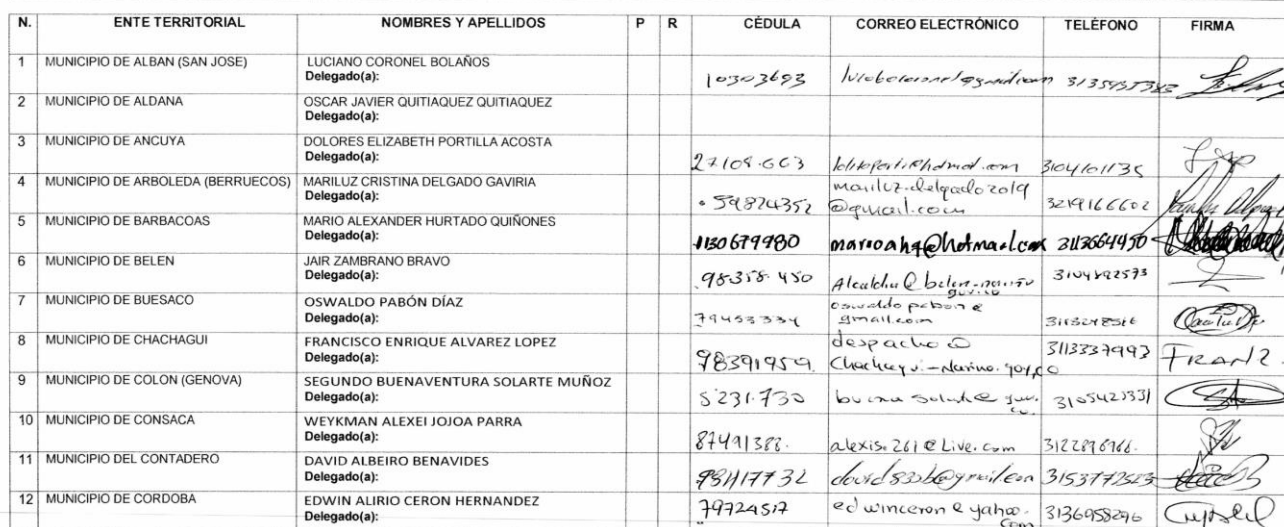 N. ENTE TERRITORIAL NOMBRES Y APELLIDOS P R CÉDULA CORREO ELECTRÓNICO TELÉFONO FIRMA
1 MUNICIPIO DE ALBAN (SAN JOSE) LUCIANO CORONEL BOLAÑOS
Delegado(a):
10303693
2 MUNICIPIO DE ALDANA OSCAR JAVIER QUITIAQUEZ QUITIAQUEZ
Delegado(a):
3 MUNICIPIO DE ANCUYA DOLORES ELIZABETH PORTILLA ACOSTA
Delegado(a):
27108.663 3104101135
4 MUNICIPIO DE ARBOLEDA (BERRUECOS) MARILUZ CRISTINA DELGADO GAVIRIA
Delegado(a):
mariluz.delgado2019
59824352 @gmail.com 3219166602
5 MUNICIPIO DE BARBACOAS MARIO ALEXANDER HURTADO QUIÑONES
Delegado(a):
1130679980 marioah7@hotmail.com 3113664450
6 MUNICIPIO DE BELEN JAIR ZAMBRANO BRAVO
Delegado(a):
98358.450 Alcaldia@belen-nariño
gov.co
7 MUNICIPIO DE BUESACO OSWALDO PABÓN DÍAZ
Delegado(a):
oswaldo pabon@
79453334 gmail.com
8 MUNICIPIO DE CHACHAGUI FRANCISCO ENRIQUE ALVAREZ LOPEZ
Delegado(a):
despacho@
98391959. Chachagui-Narino.gov.co 3113337993 FRANZ.
9 MUNICIPIO DE COLON (GENOVA) SEGUNDO BUENAVENTURA SOLARTE MUÑOZ
Delegado(a):
5231.730 3105423331
10 MUNICIPIO DE CONSACA WEYKMAN ALEXEI JOJOA PARRA
Delegado(a):
87491388. alexis.261@Live.com 3122896966.
11 MUNICIPIO DEL CONTADERO DAVID ALBEIRO BENAVIDES
Delegado(a):
3153772523
12 MUNICIPIO DE CORDOBA EDWIN ALIRIO CERON HERNANDEZ
Delegado(a):
79724517 edwinceron@yahoo.
com 3136958296